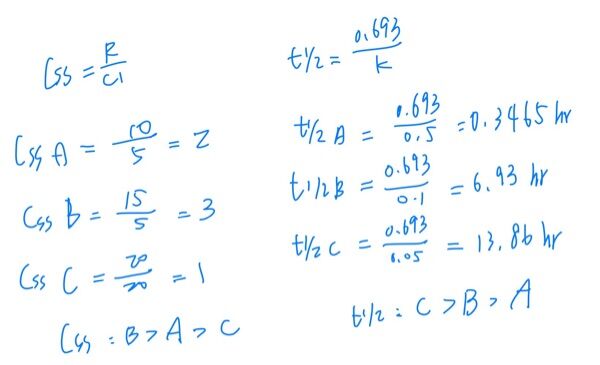 Css = R/Cl
Css A = 10/5 = 2
Css B = 15/5 = 3
Css C = 20/20 = 1
Css : B > A > C
t1/2 = 0.693/k
t1/2 A = 0.693/0.5 = 0.3465 hr
t1/2 B = 0.693/0.1 = 6.93 hr
t1/2 C = 0.693/0.05 = 13.86 hr
t1/2 : C > B > A